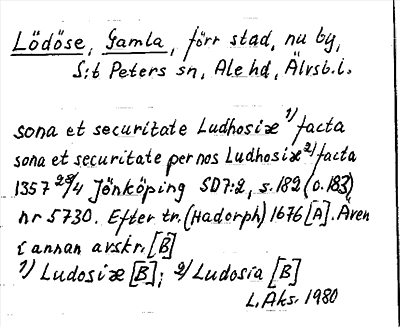 Lödöse, Gamla, förr stad, nu by,
S:t Peters sn, Ale hd, Älvsb.l.
sona et securitate Ludhosiæ 1) facta
sona et securitate per nos Ludhosiæ 2) facta
1357 28/4 Jönköping SD7:2, s. 182 (o. 183),
nr 5730. Efter tr. (Hadorph) 1676 [A]. Även
i annan avskr. [B]
1) Ludosiæ [B]; 2) Ludosia [B]
L. Aks. 1980